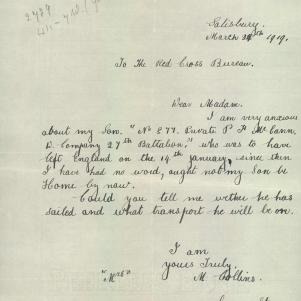 2779
Salisbury.
March 24th 1919.
To The Red Cross Bureau.
Dear Madam.
I am very anxious
about my Son. "No 277. Private P. F. McCann,
D. Company 27th Battalion," who was to have
left England on the 14th January, since then
I have had no word, ought not my son be
Home by now.
Could you tell me wether he has
sailed and what transport he will be on.
I am
yours Truly.
"Mrs" M. Collins.